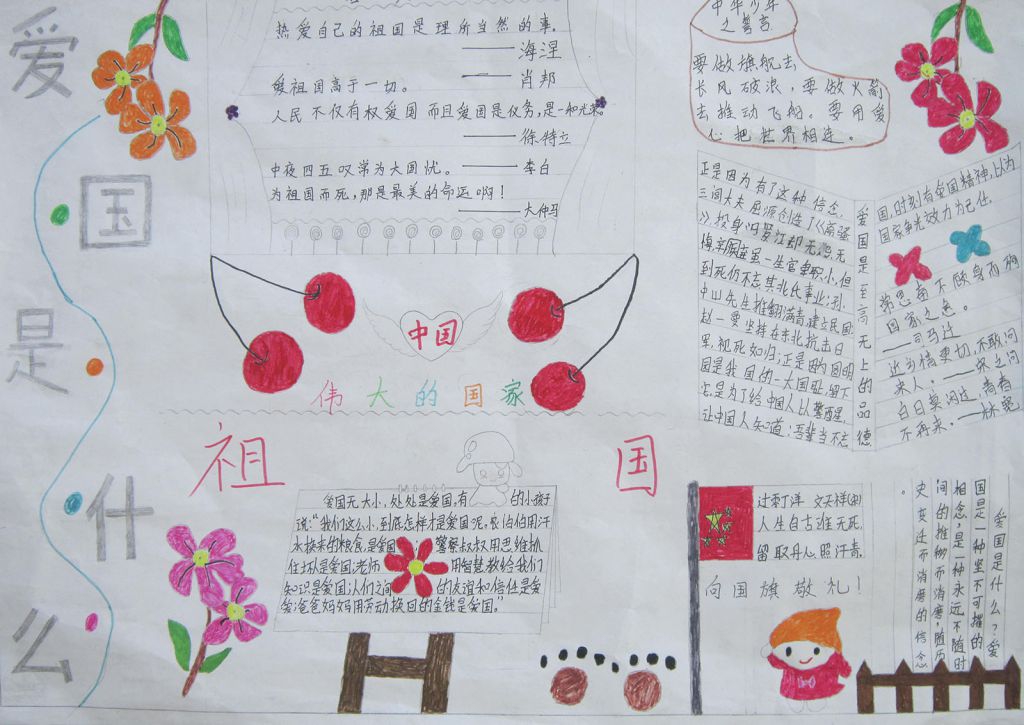 爱
国
是
什
么
热爱自己的祖国是理所当然的事.
——海涅
爱祖国高于一切。
——肖邦
人民不仅有权爱国而且爱国是仪务,是一和光荣
——徐特立
中夜四五叹常为大国忧。——李白
为祖国而死,那是最美的命运啊!
——大仲马
中华少年
之誓言
要做旗舰去
长风破浪,要做火箭
去推动飞船。要用爱
心把世界相连。
中国
伟大的国家
祖国
正是因为有了这种信念,
三闾大夫屈原创造了《离骚
》,投身汨罗江却无
到死仍不忘其北
中山先生推翻满清,建立民国
赵一要坚持在东北抗击日
视死如归;正是因为圆明
园是我国的一大国耻,留下
它是为了给中国人以警醒,
让中国人知道:吾辈当不忘
爱国是至高无上的品德
国,时刻有爱国精神,以为
国家争光效力为己任.
常思奋不顾身而殉
国家之急。
——司马迁
近乡情更切,不敢问
来人。——宋之问
白日莫闲过,青春
不再来.——林宽
爱国无大小,处处是爱国,有的小孩子
说:"我们这么小,到底怎样才是爱国呢,
水换来的粮食,是爱国;警察叔叔用思维抓
住坏蛋是爱国;老师用智慧教给我们
知识是爱国;人们之间的友谊和信任是爱
爸爸妈妈用劳动换回的金钱是爱国。"
过零丁洋 文天祥
人生自古谁无死
留取丹心照汗青.
向国旗敬礼!
爱国是什么?爱
国是一种坚不可摧的
相念,是一种永远不随时
间的推移而消磨,随历
史变迁而消磨的信念
。